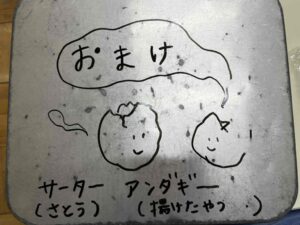 おまけ
サーター アンダギー
(さとう) (揚げたやつ)